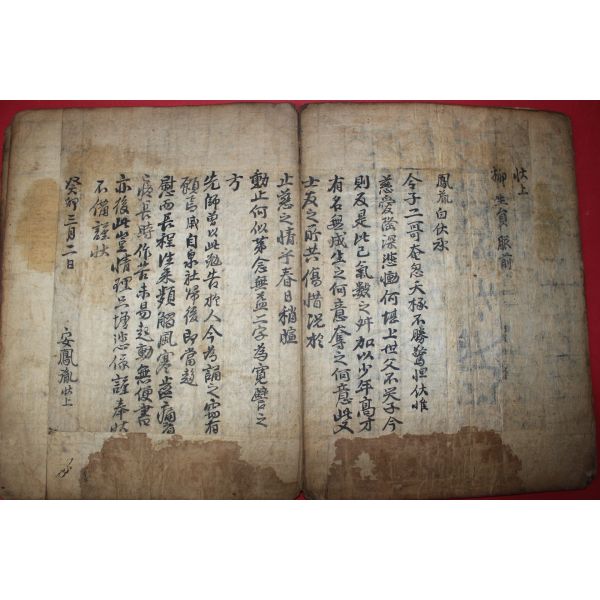 狀上
柳生員服前
鳳胤白伏承
令子二哥奄忽夭極不勝驚怛伏惟
慈愛隆深悲慟何堪上世父不哭子今
則反是此已氣數之舛加以少年高才
有名無成生之何意奪之何意此又
士友之所共傷惜況於
止慈之情乎春日稍暄
動止何似第念無益二字為寬譬之
方
先師曾以此勉告於人今為誦之寧有
願焉咸自泉社歸後即當趨
慰而長程往來類觸風寒齒痛有
長時作苦未易起動無便書
亦後此豈情理只增悲係謹奉狀
不備謹狀
癸卯三月二日
安鳳胤狀上